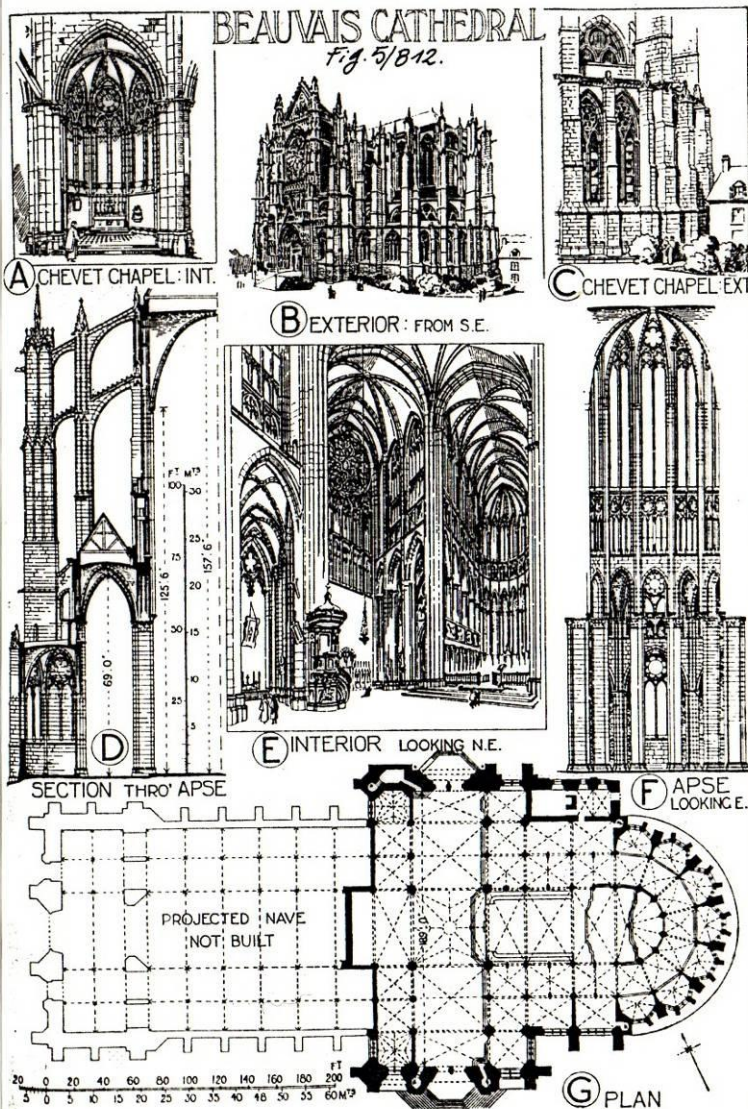 BEAUVAIS CATHEDRAL
Fig. 5/812.
A CHEVET CHAPEL: INT.
B EXTERIOR: FROM S.E.
C CHEVET CHAPEL: EXT
FT MTRS
100
30
25
75
20
50
15
10
25
5
69'.0"
125'.6
157'.6
D
SECTION THRO' APSE
E INTERIOR LOOKING N.E.
F APSE
LOOKING E.
PROJECTED NAVE
NOT BUILT
189'.0"
FT
20 0 20 40 60 80 100 120 140 160 180 200
5 0 5 10 15 20 25 30 35 40 45 50 55 60 MTRS
G PLAN